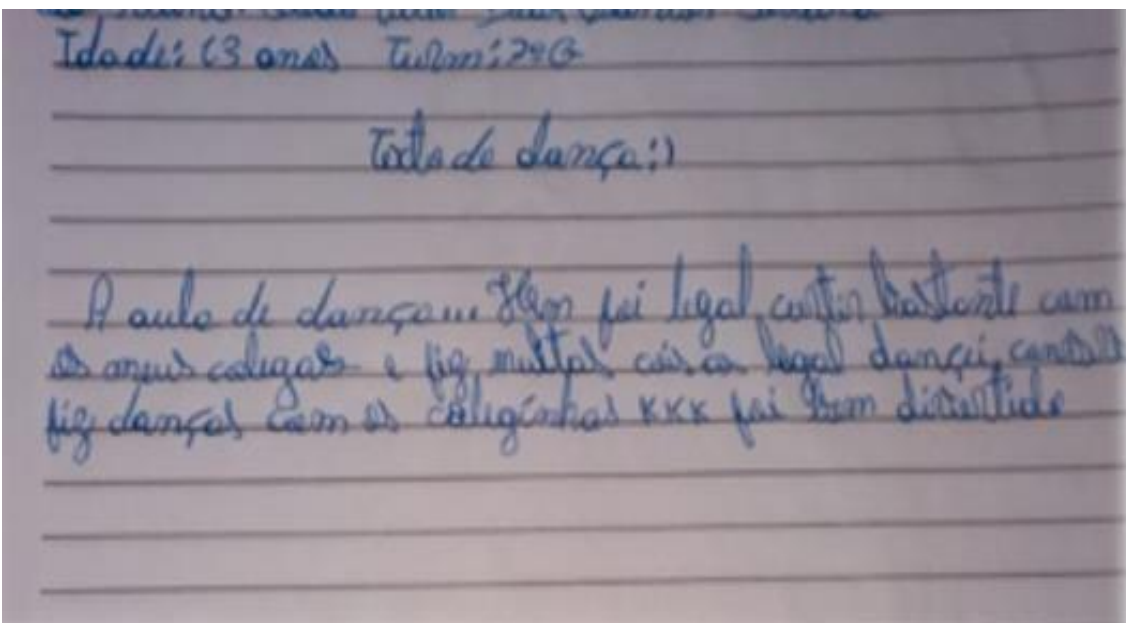 Idade: 13 anos Turm: 7º G
Texto de dança:)
A aula de dança foi legal, curtir bastante com
os meus colegas e fiz muitas coisas legal dancei,
fiz danças com os coleginhas KKK foi bem divertido